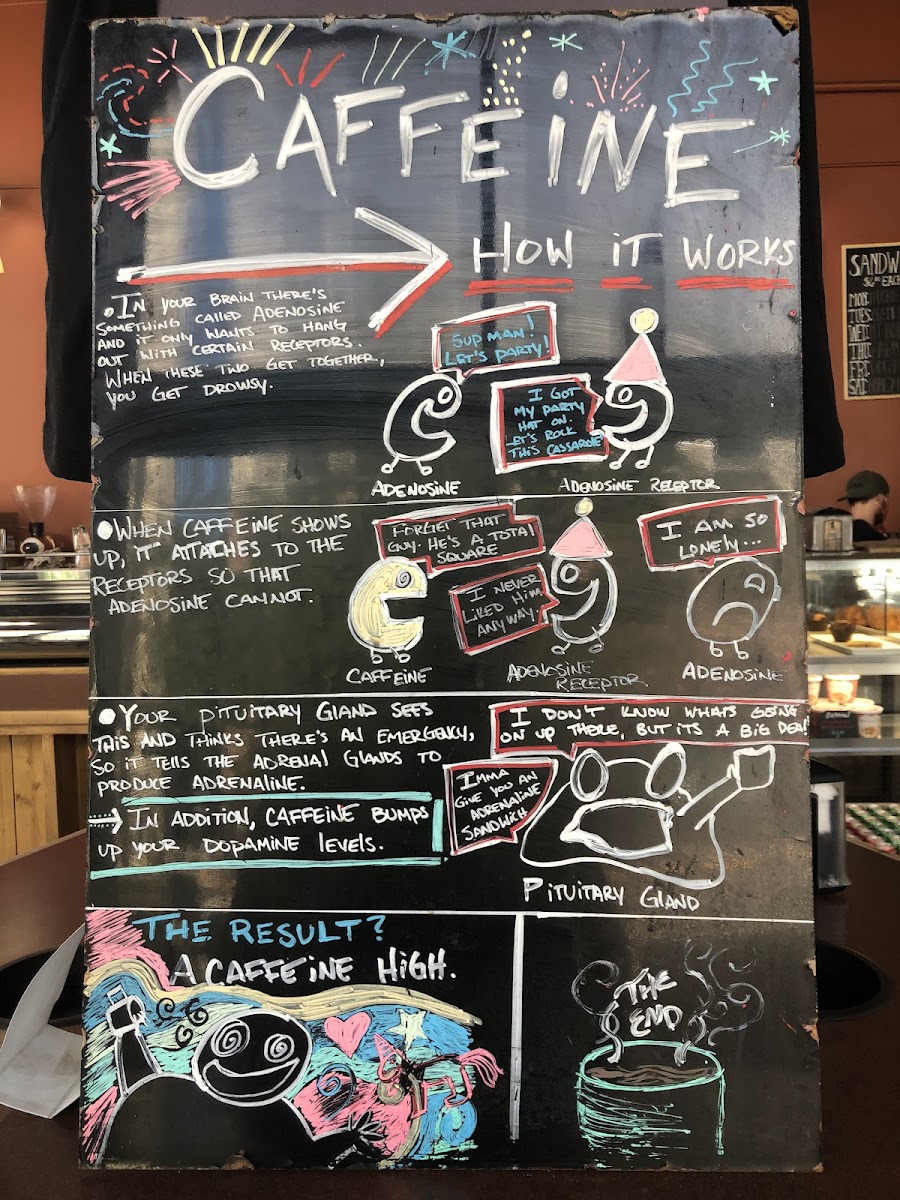 CAFFEiNE
HOW iT WORKS
• IN YOUR BRAIN THERE'S
SOMETHING CALLED ADENOSINE
AND IT ONLY WANTS TO HANG
OUT WITH CERTAIN RECEPTORS.
WHEN THESE TWO GET TOGETHER,
YOU GET DROWSY.
SUP MAN!
LET'S PARTY!
I GOT
MY PARTY
HAT ON.
LET'S ROCK
THIS CASSAROLE
ADENOSINE
ADENOSINE RECEPTOR
• WHEN CAFFEINE SHOWS
UP, IT ATTACHES TO THE
RECEPTORS SO THAT
ADENOSINE CANNOT.
FORGET THAT
GUY. HE'S A TOTAL
SQUARE
I NEVER
LIKED HIM
ANYWAY.
I AM SO
LONELY...
CAFFEINE
ADENOSINE
RECEPTOR
ADENOSINE
• YOUR PITUITARY GLAND SEES
THIS AND THINKS THERE'S AN EMERGENCY,
SO IT TELLS THE ADRENAL GLANDS TO
PRODUCE ADRENALINE.
IN ADDITION, CAFFEINE BUMPS
UP YOUR DOPAMINE LEVELS.
I DON'T KNOW WHATS GOING
ON UP THERE, BUT ITS A BIG DEAL!
IMMA
GIVE YOU AN
ADRENALINE
SANDWICH
PITUITARY GLAND
THE RESULT?
A CAFFEINE HIGH.
THE
END
SANDW
MON:
TUES:
WED:
THU:
FRI:
SAT: